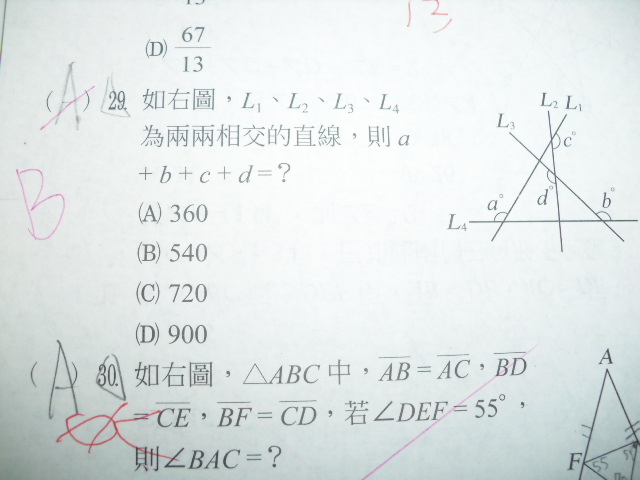 13
(D) 67/13
13
(A) 29. 如右圖，L₁、L₂、L₃、L₄
為兩兩相交的直線，則 a
+ b + c + d = ？
B
(A) 360
(B) 540
(C) 720
(D) 900
L₂ L₁
L₃
c°
a° d° b°
L₄
(A) 30. 如右圖，△ABC 中，A̅B̅ = A̅C̅，B̅D̅
= C̅E̅，B̅F̅ = C̅D̅，若∠DEF = 55°，
則∠BAC = ？
A
F 55